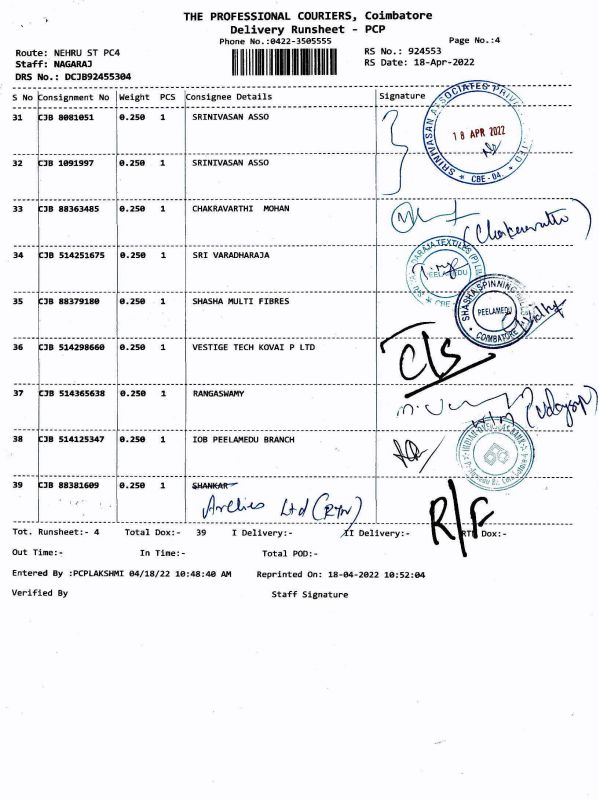 THE PROFESSIONAL COURIERS, Coimbatore
Delivery Runsheet - PCP
Phone No.:0422-3505555
Page No.:4
Route: NEHRU ST PC4
RS No.: 924553
Staff: NAGARAJ
RS Date: 18-Apr-2022
DRS No.: DCJB92455304
S No Consignment No Weight PCS Consignee Details Signature
31 CJB 8081051 0.250 1 SRINIVASAN ASSO
SRINIVASAN ASSOCIATES PRIVATE LIMITED
18 APR 2022
* CBE - 04. *
32 CJB 1091997 0.250 1 SRINIVASAN ASSO
33 CJB 88363485 0.250 1 CHAKRAVARTHI MOHAN
34 CJB 514251675 0.250 1 SRI VARADHARAJA
PEELAMEDU
35 CJB 88379180 0.250 1 SHASHA MULTI FIBRES
SHASHA SPINNING MILLS
PEELAMEDU
COIMBATORE
36 CJB 514298660 0.250 1 VESTIGE TECH KOVAI P LTD
C/S
37 CJB 514365638 0.250 1 RANGASWAMY
38 CJB 514125347 0.250 1 IOB PEELAMEDU BRANCH
INDIAN OVERSEAS BANK
39 CJB 88381609 0.250 1 SHANKAR
Ltd
R/F
Tot. Runsheet:- 4 Total Dox:- 39 I Delivery:- II Delivery:- RTN Dox:-
Out Time:- In Time:- Total POD:-
Entered By :PCPLAKSHMI 04/18/22 10:48:40 AM Reprinted On: 18-04-2022 10:52:04
Verified By Staff Signature